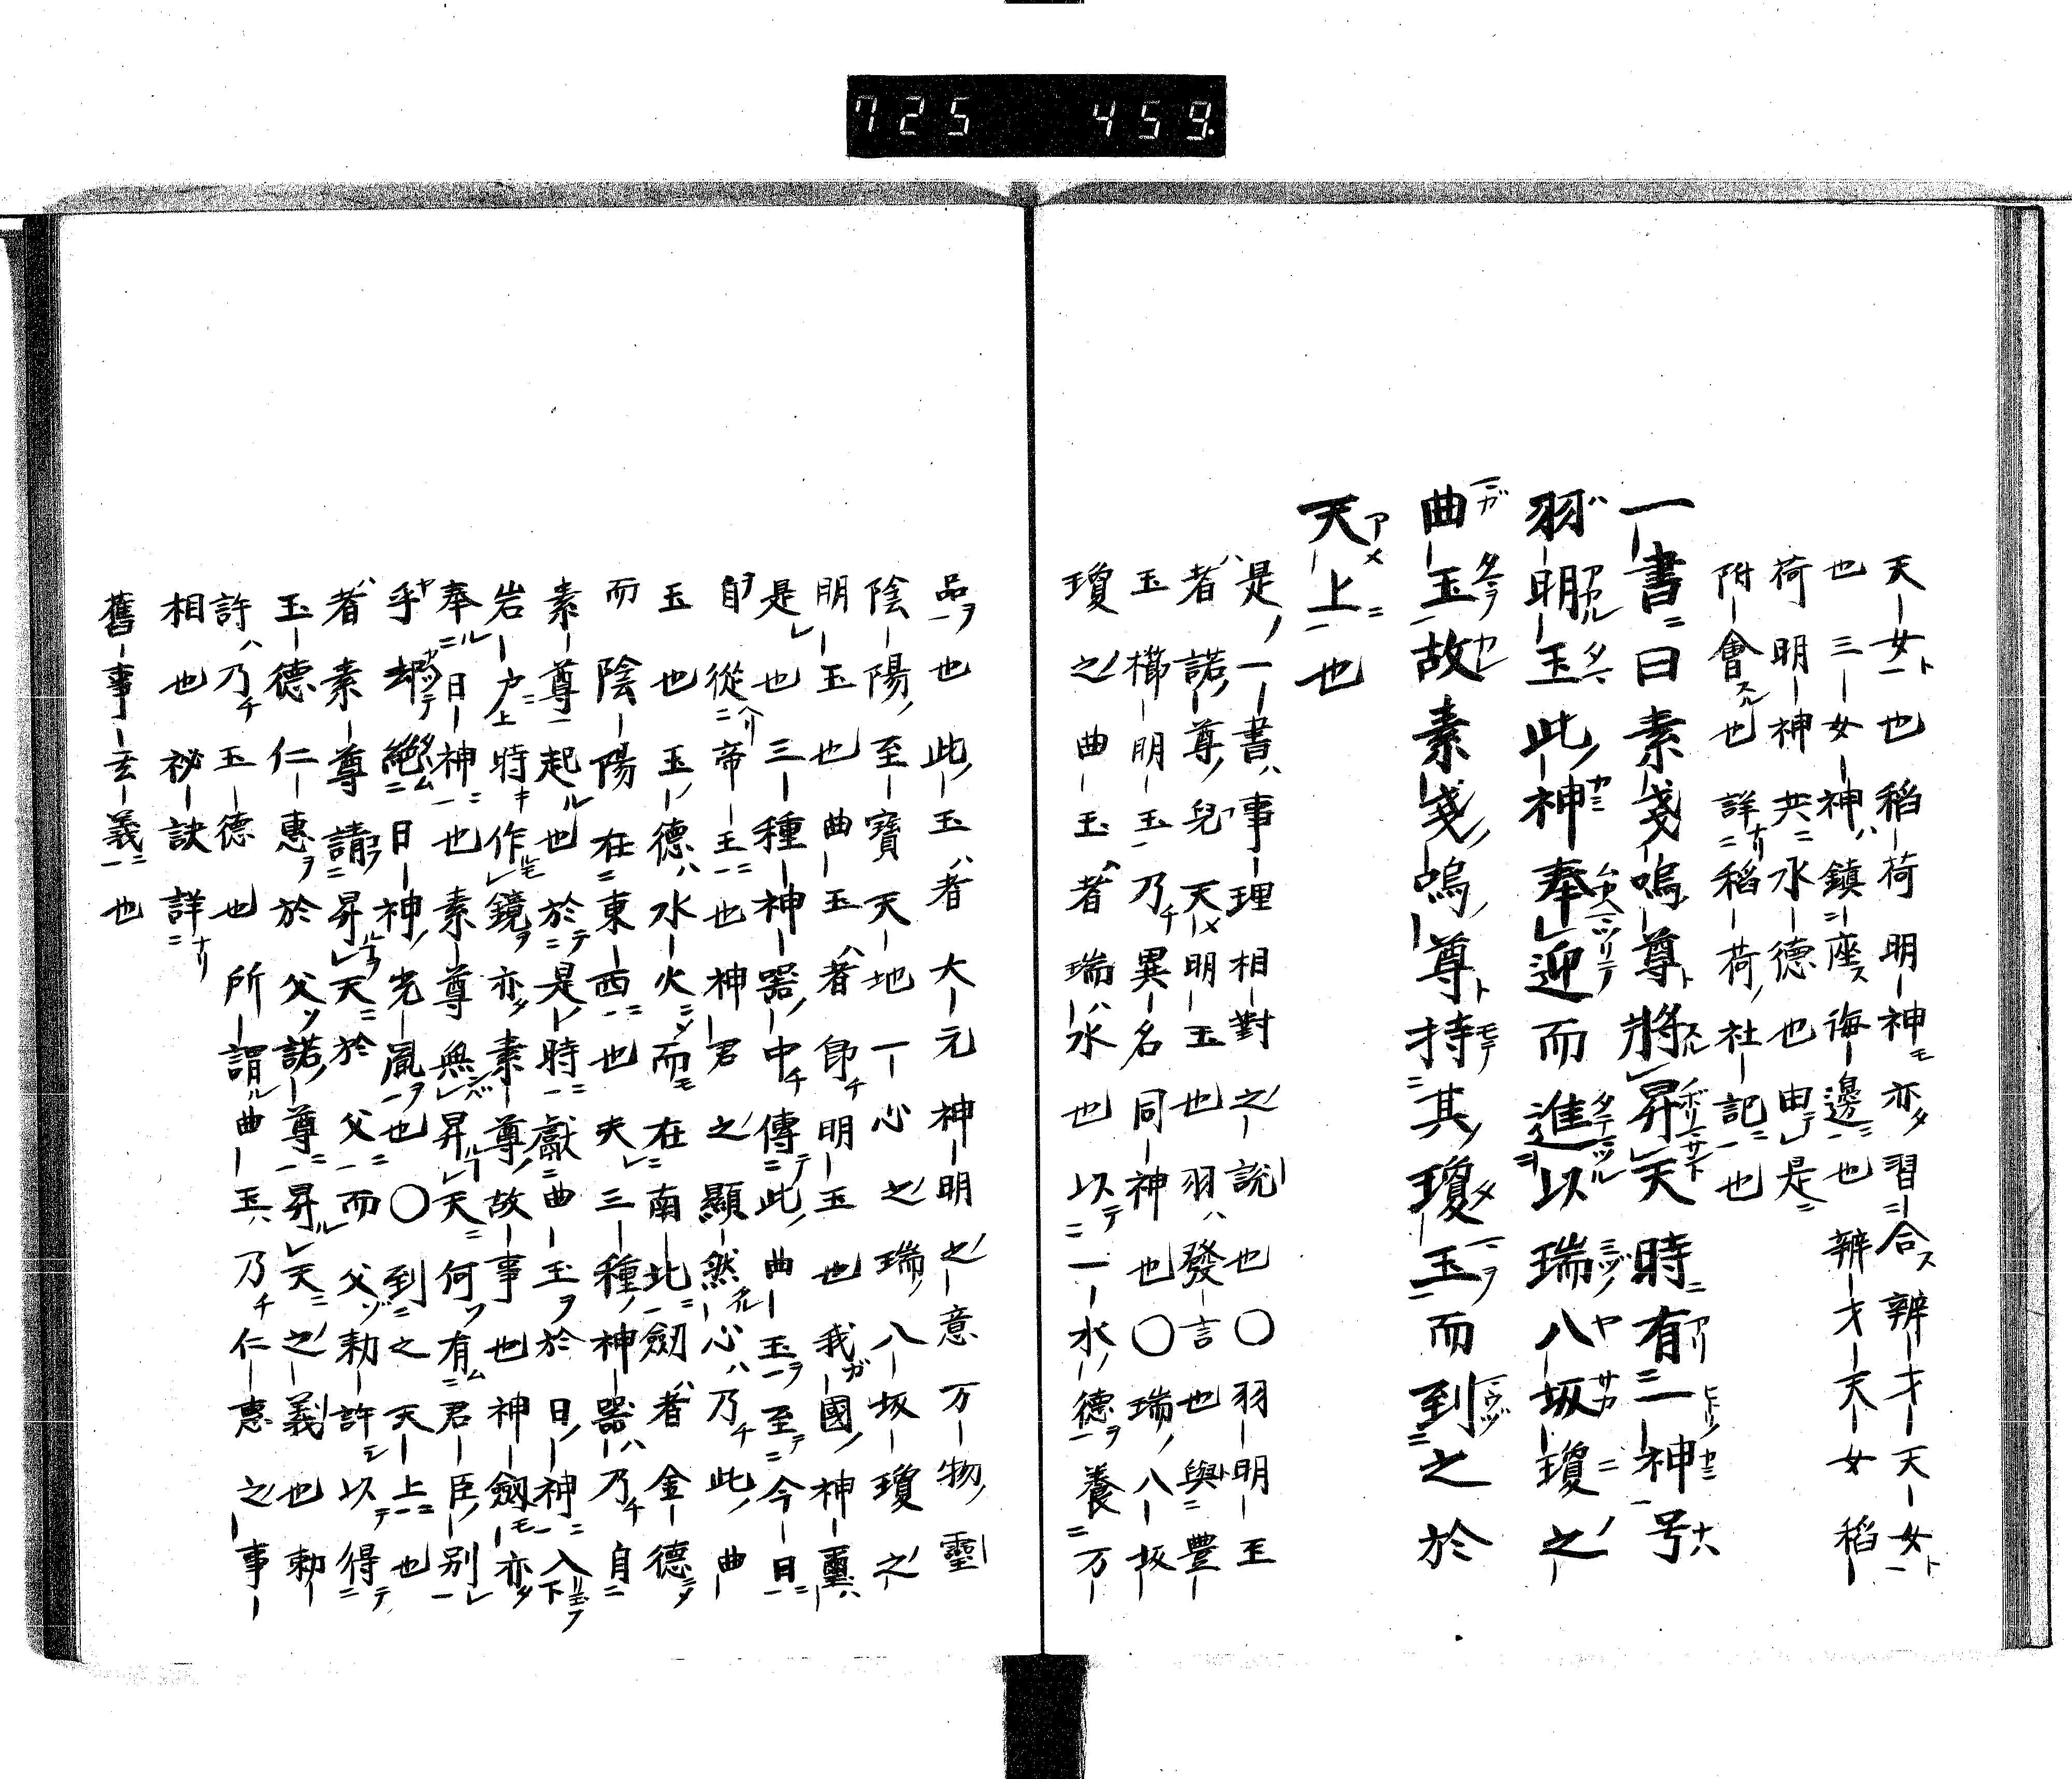 725 459.
天女也稻荷明神亦習合辨才天女
也三女神鎮座海邊也辨才天女稻
荷明神共水德也由是
附會也詳稻荷社記也
一書曰素戔嗚尊將昇天時有一神号
羽明玉此神奉迎而進以瑞八坂瓊之
曲玉故素戔嗚尊持其瓊玉而到之於
天上也
是一書事理相對之說也〇羽明玉
者諾尊兒天明玉也羽發言也與豊
玉櫛明玉乃異名同神也〇瑞八坂
瓊之曲玉者瑞水也以一水德養万
品也此玉者大元神明之意万物靈
陰陽至寶天地一心之瑞八坂瓊之
明玉也曲玉者即明玉也我國神璽
是也三種神器中傳此曲玉至今日
自從帝王也神君之顯然心乃此曲
玉也玉德水火而在南北劒者金德
而陰陽在東西也夫三種神器乃自
素尊起也於是時獻曲玉於日神入
岩戸時作鏡亦素尊故事也神劔亦
奉日神也素尊無昇天何有君臣別
乎却絕日神光胤也〇到之天上也
者素尊請昇天於父而父勅許以得
玉德仁惠於父諾尊昇天之義也勅
許乃玉德也所謂曲玉乃仁惠之事
相也祕訣詳
舊事玄義也